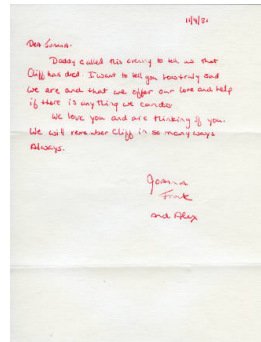 11/9/80
Dear
Daddy called this evening to tell us that
Cliff has died. I want to tell you how truly sad
we are and that we offer our love and help
if there is anything we can do
We love you and are thinking of you.
We will remember Cliff in so many ways
Always.
Joanna
Frank
and Alex